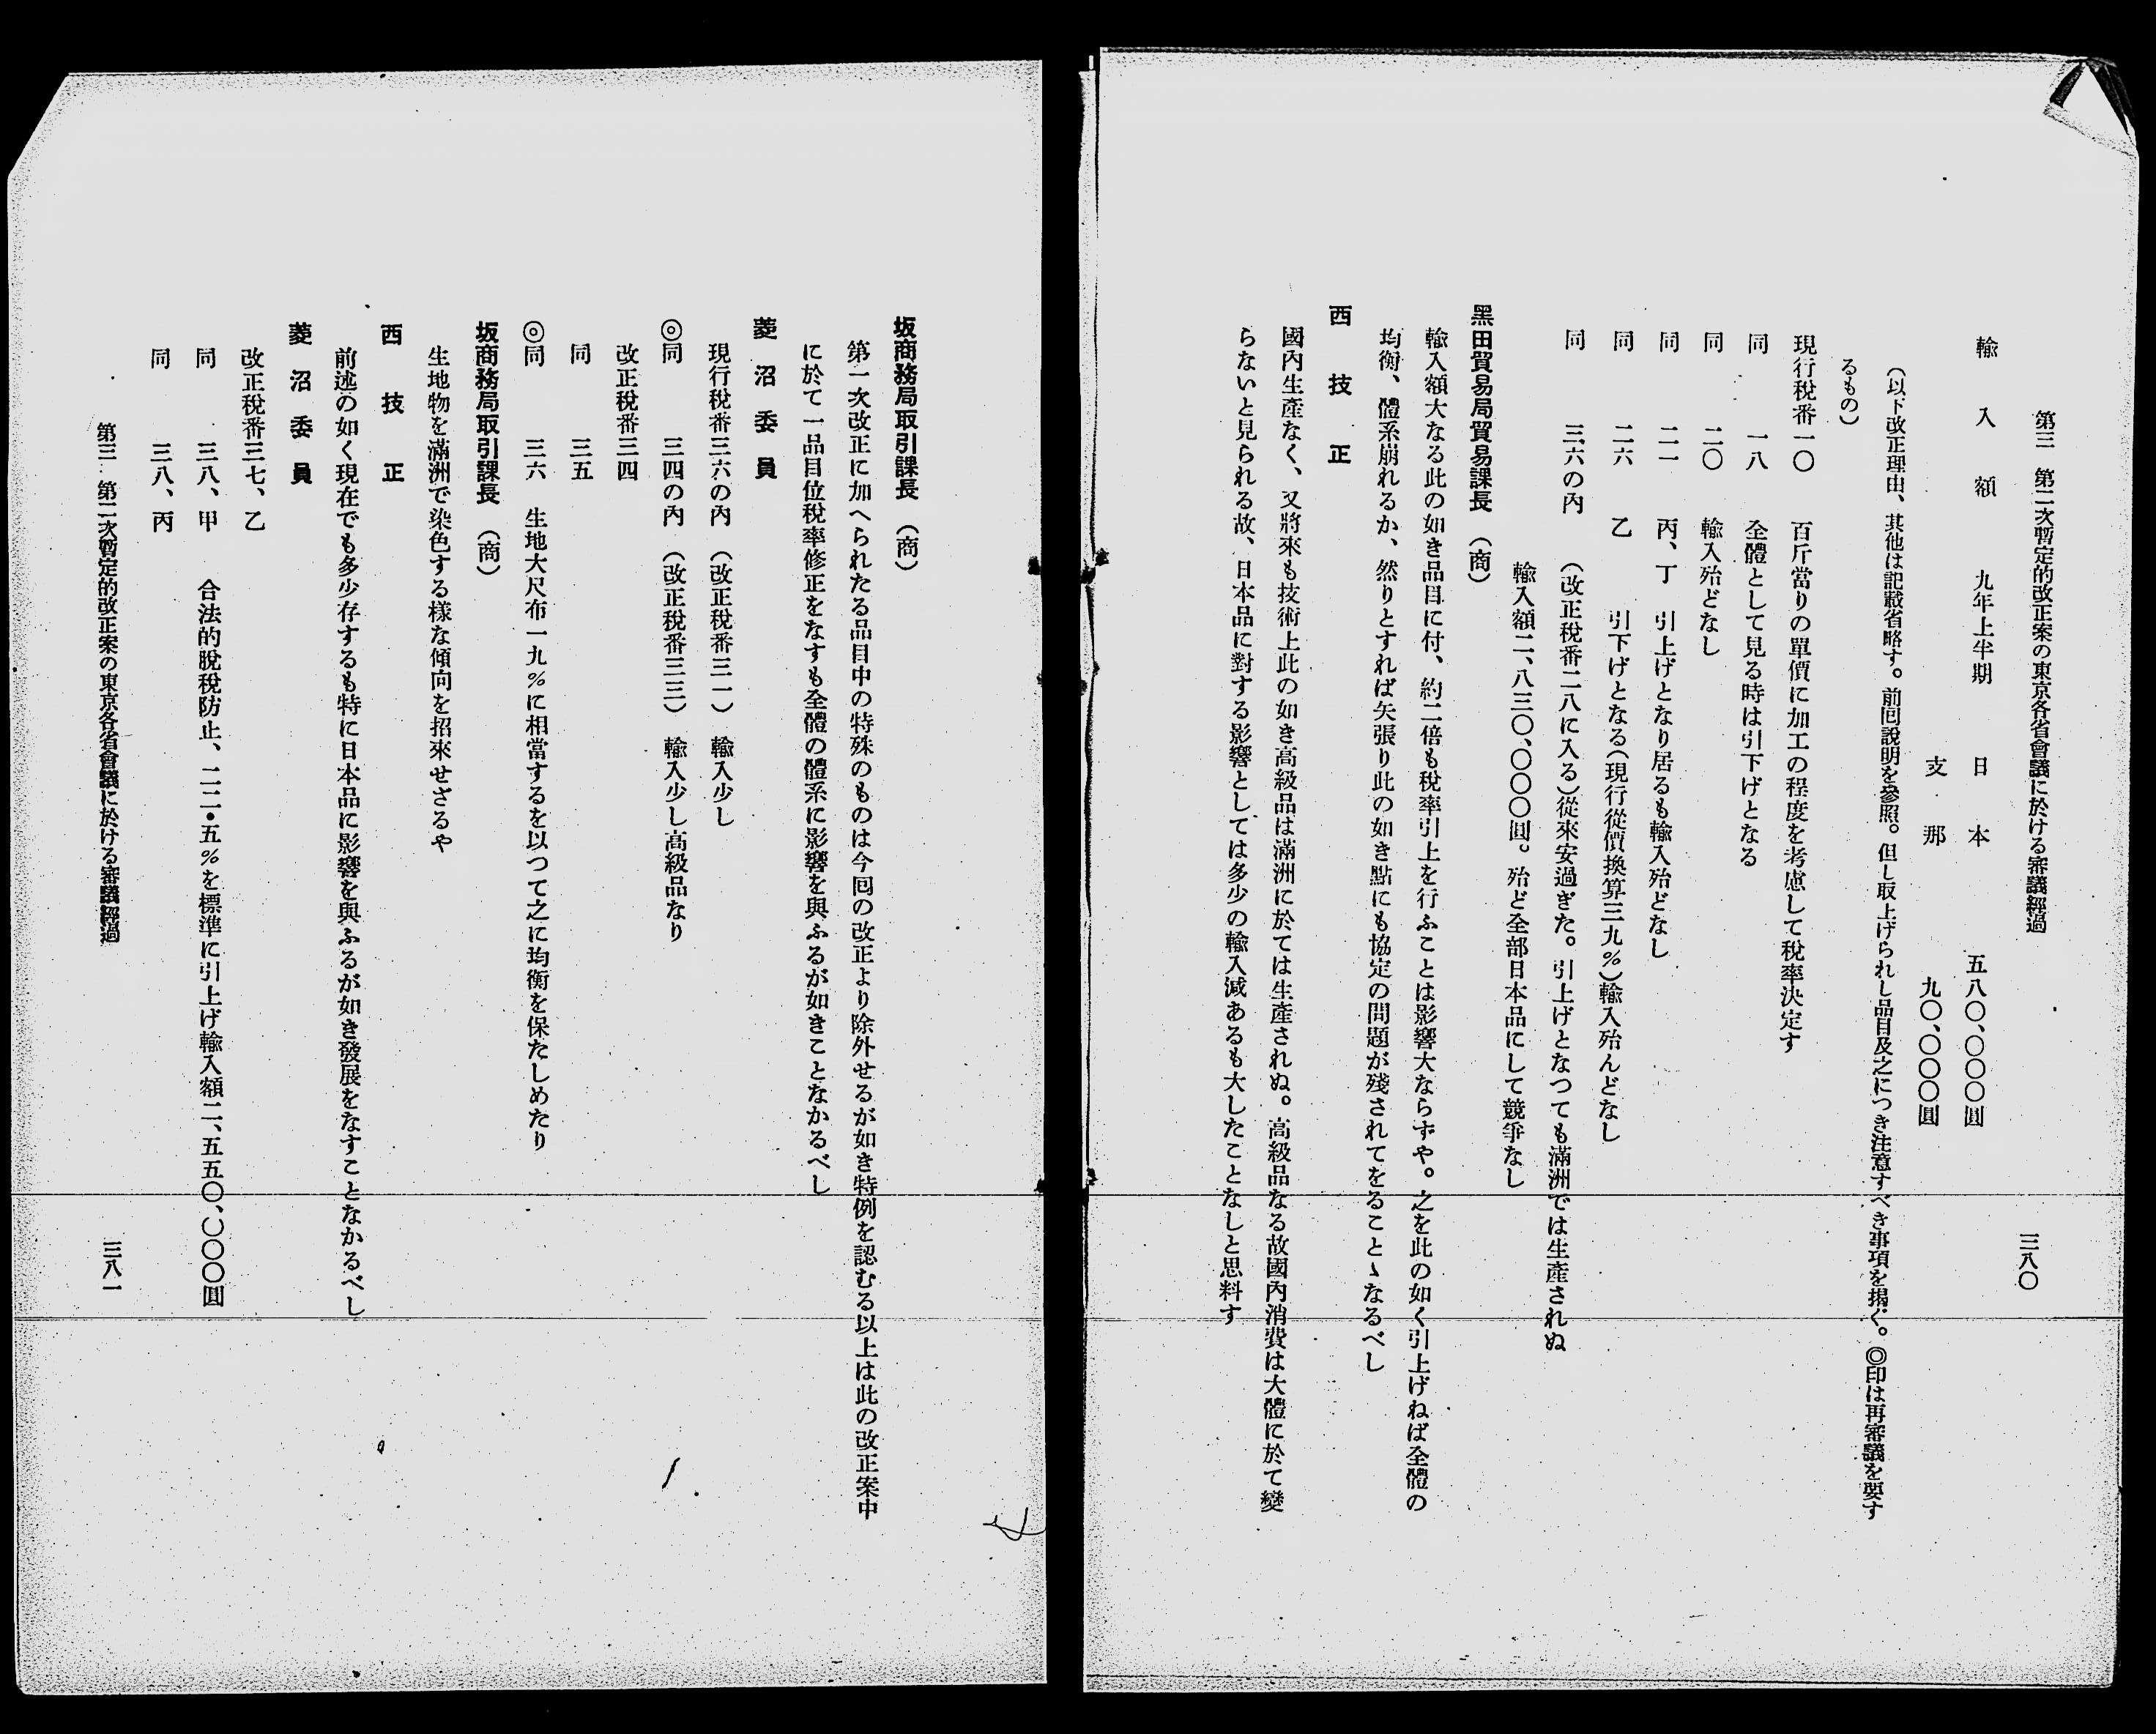 第三　第二次暫定的改正案の東京各省會議に於ける審議經過　三八〇
輸入額　九年上半期　日本　五八〇、〇〇〇圓
支那　九〇、〇〇〇圓
（以下改正理由、其他は記載省略す。前囘說明を參照。但し取上げられし品目及之につき注意すべき事項を揭ぐ。◎印は再審議を要す
るもの）
現行稅番一〇　百斤當りの單價に加工の程度を考慮して稅率決定す
同　一八　全體として見る時は引下げとなる
同　二〇　輸入殆どなし
同　二一　丙、丁　引上げとなり居るも輸入殆どなし
同　二六　乙　引下げとなる（現行從價換算三九％）輸入殆んどなし
同　三六の內　（改正稅番二八に入る）從來安過ぎた。引上げとなつても滿洲では生產されぬ
輸入額二、八三〇、〇〇〇圓。殆ど全部日本品にして競爭なし
黑田貿易局貿易課長（商）
輸入額大なる此の如き品目に付、約二倍も稅率引上を行ふことは影響大ならずや。之を此の如く引上げねば全體の
均衡、體系崩れるか、然りとすれば矢張り此の如き點にも協定の問題が殘されてをることゝなるべし
西技正
國內生產なく、又將來も技術上此の如き高級品は滿洲に於ては生產されぬ。高級品なる故國內消費は大體に於て變
らないと見られる故、日本品に對する影響としては多少の輸入減あるも大したことなしと思料す
坂商務局取引課長（商）
第一次改正に加へられたる品目中の特殊のものは今囘の改正より除外せるが如き特例を認むる以上は此の改正案中
に於て一品目位稅率修正をなすも全體の體系に影響を與ふるが如きことなかるべし
菱沼委員
現行稅番三六の內　（改正稅番三一）　輸入少し
◎同　三四の內　（改正稅番三三）　輸入少し高級品なり
改正稅番三四
同　三五
◎同　三六　生地大尺布一九％に相當するを以つて之に均衡を保たしめたり
坂商務局取引課長（商）
生地物を滿洲で染色する樣な傾向を招來せざるや
西技正
前述の如く現在でも多少存するも特に日本品に影響を與ふるが如き發展をなすことなかるべし
菱沼委員
改正稅番三七、乙
同　三八、甲　合法的脫稅防止、二二・五％を標準に引上げ輸入額二、五五〇、〇〇〇圓
同　三八、丙
第三　第二次暫定的改正案の東京各省會議に於ける審議經過　三八一